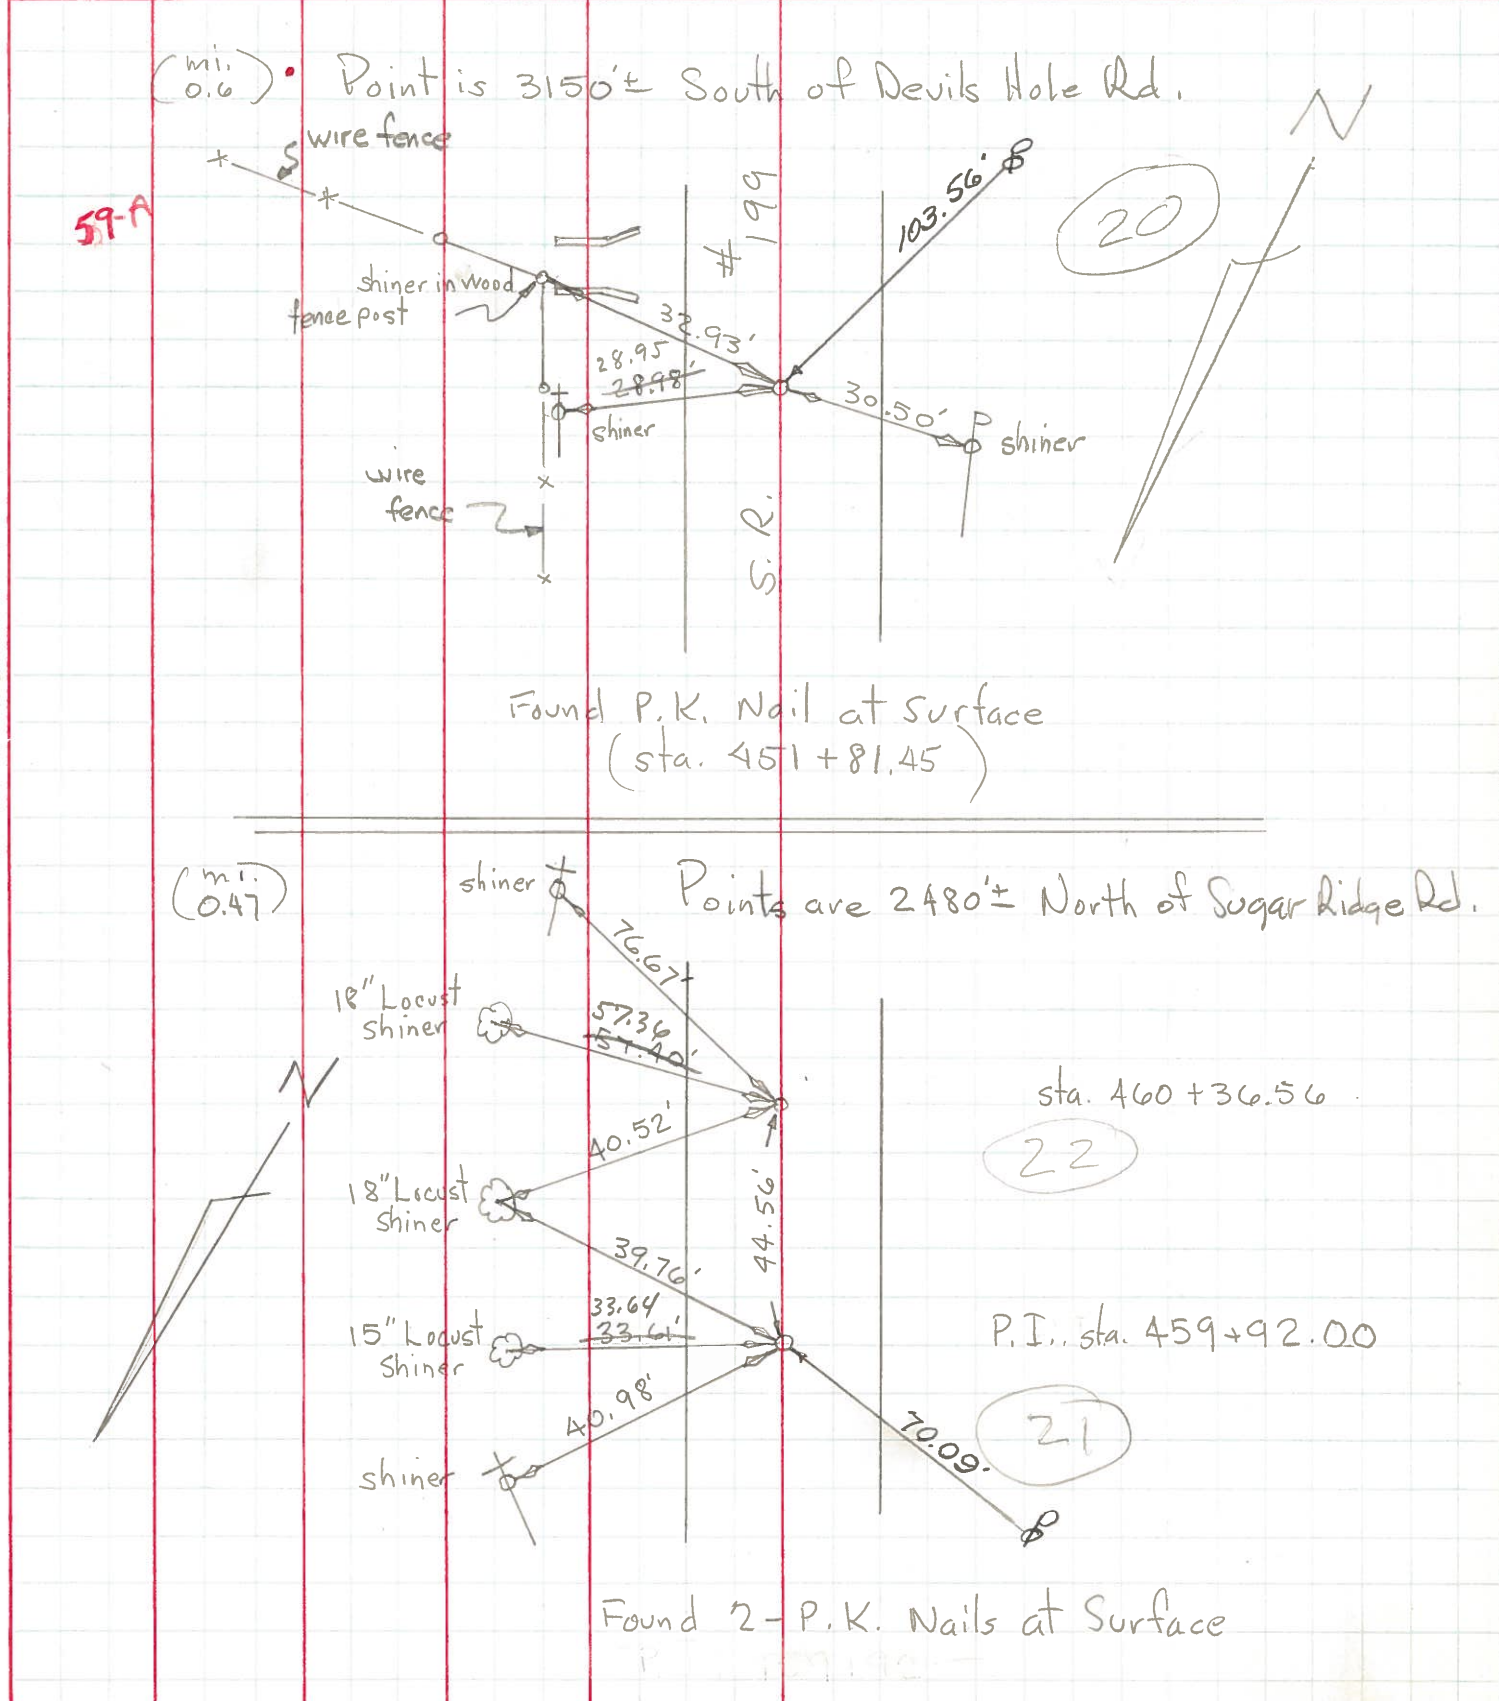 (mi. 0.6) • Point is 3150'± South of Devils Hole Rd.
wire fence
N
59-A
103.56'
20
# 199
shiner in wood
fence post
32.93'
28.95
28.98'
30.50'
shiner
shiner
wire
fence
S.R.
Found P.K. Nail at Surface
(sta. 451+81.45)
(mi. 0.47)
shiner
Points are 2480'± North of Sugar Ridge Rd.
76.67
18" Locust
shiner
57.36
57.40'
N
sta. 460+36.56
40.52'
22
18" Locust
shiner
44.56'
39.76'
33.64
33.61'
15" Locust
shiner
P.I. sta. 459+92.00
40.98'
21
70.09'
shiner
Found 2-P.K. Nails at Surface